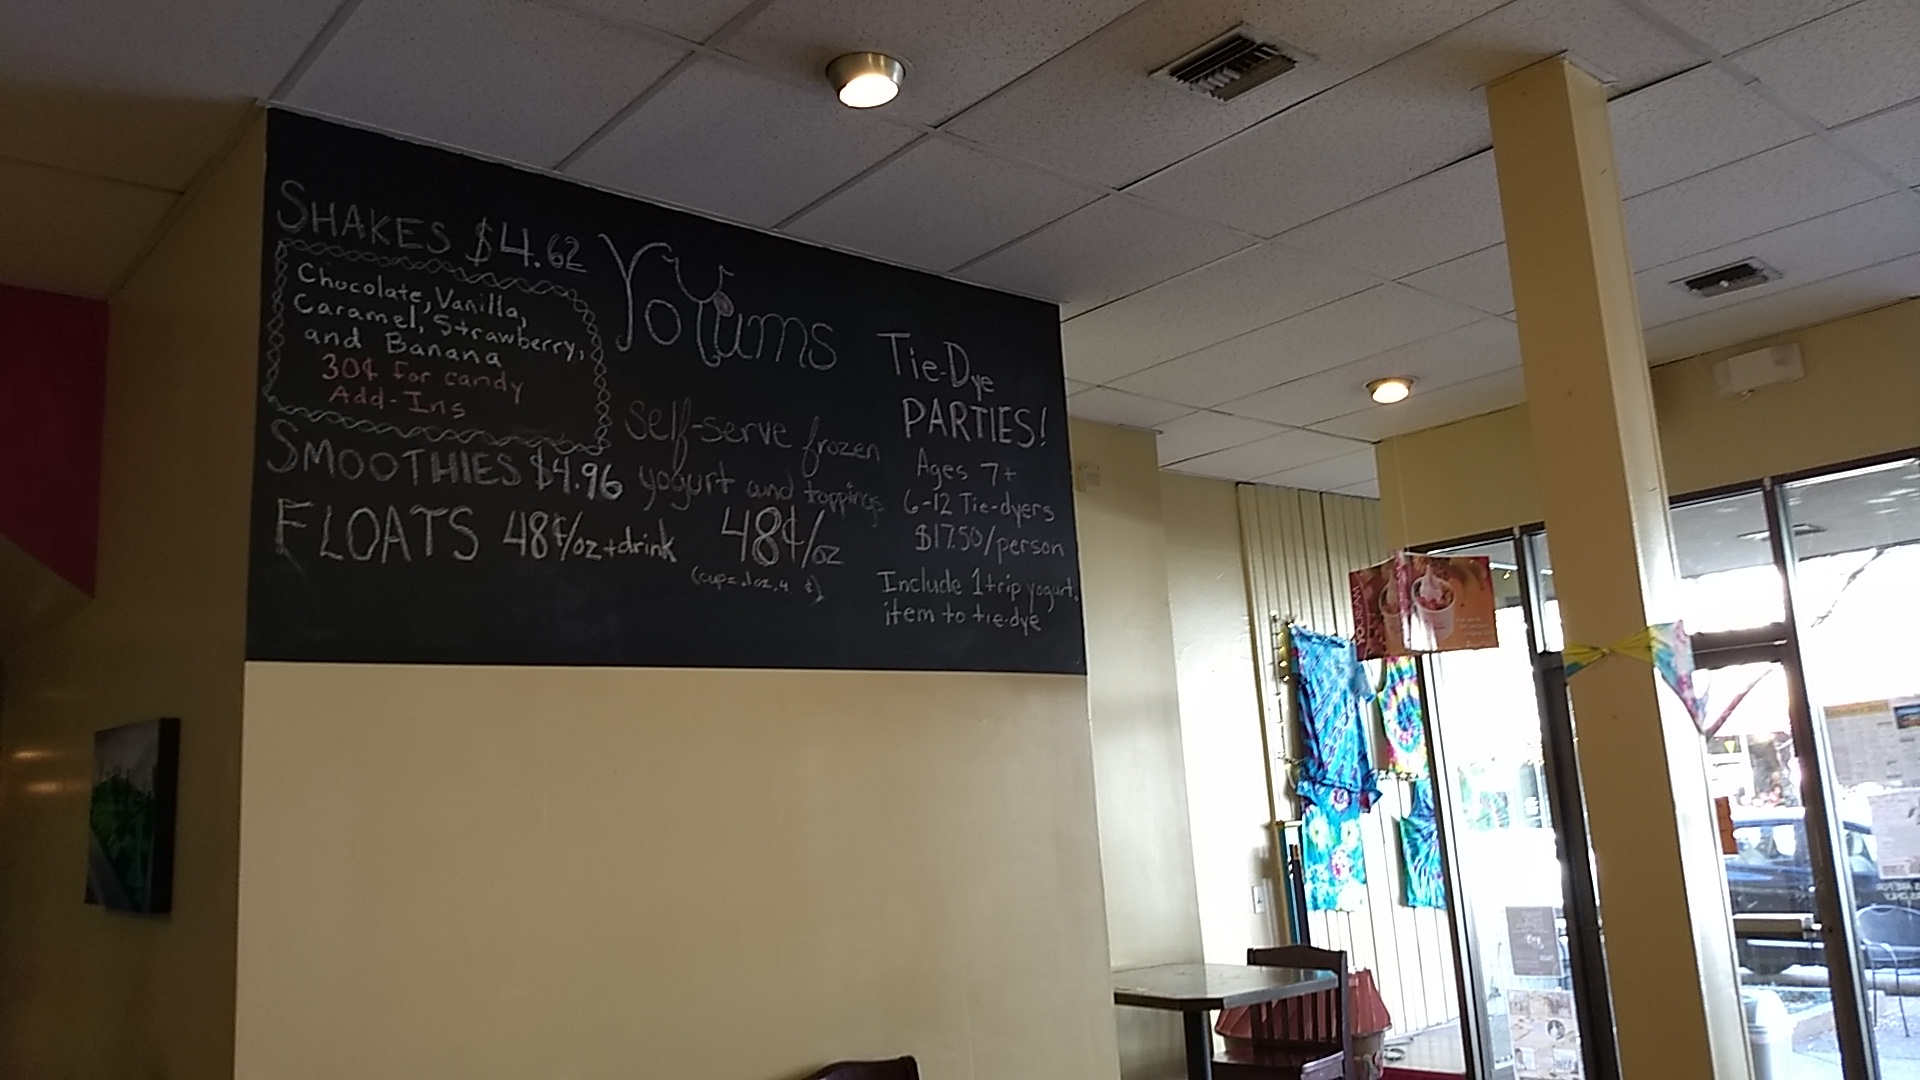 SHAKES $4.62
Chocolate, Vanilla,
Caramel, Strawberry,
and Banana
30¢ for candy
Add-Ins
SMOOTHIES $4.96
FLOATS 48¢/oz+drink
YoYums
self-serve frozen
yogurt and toppings
48¢/oz
Tie-Dye
PARTIES!
Ages 7+
6-12 Tie-dyers
$17.50/person
Include 1 trip yogurt,
item to tie-dye